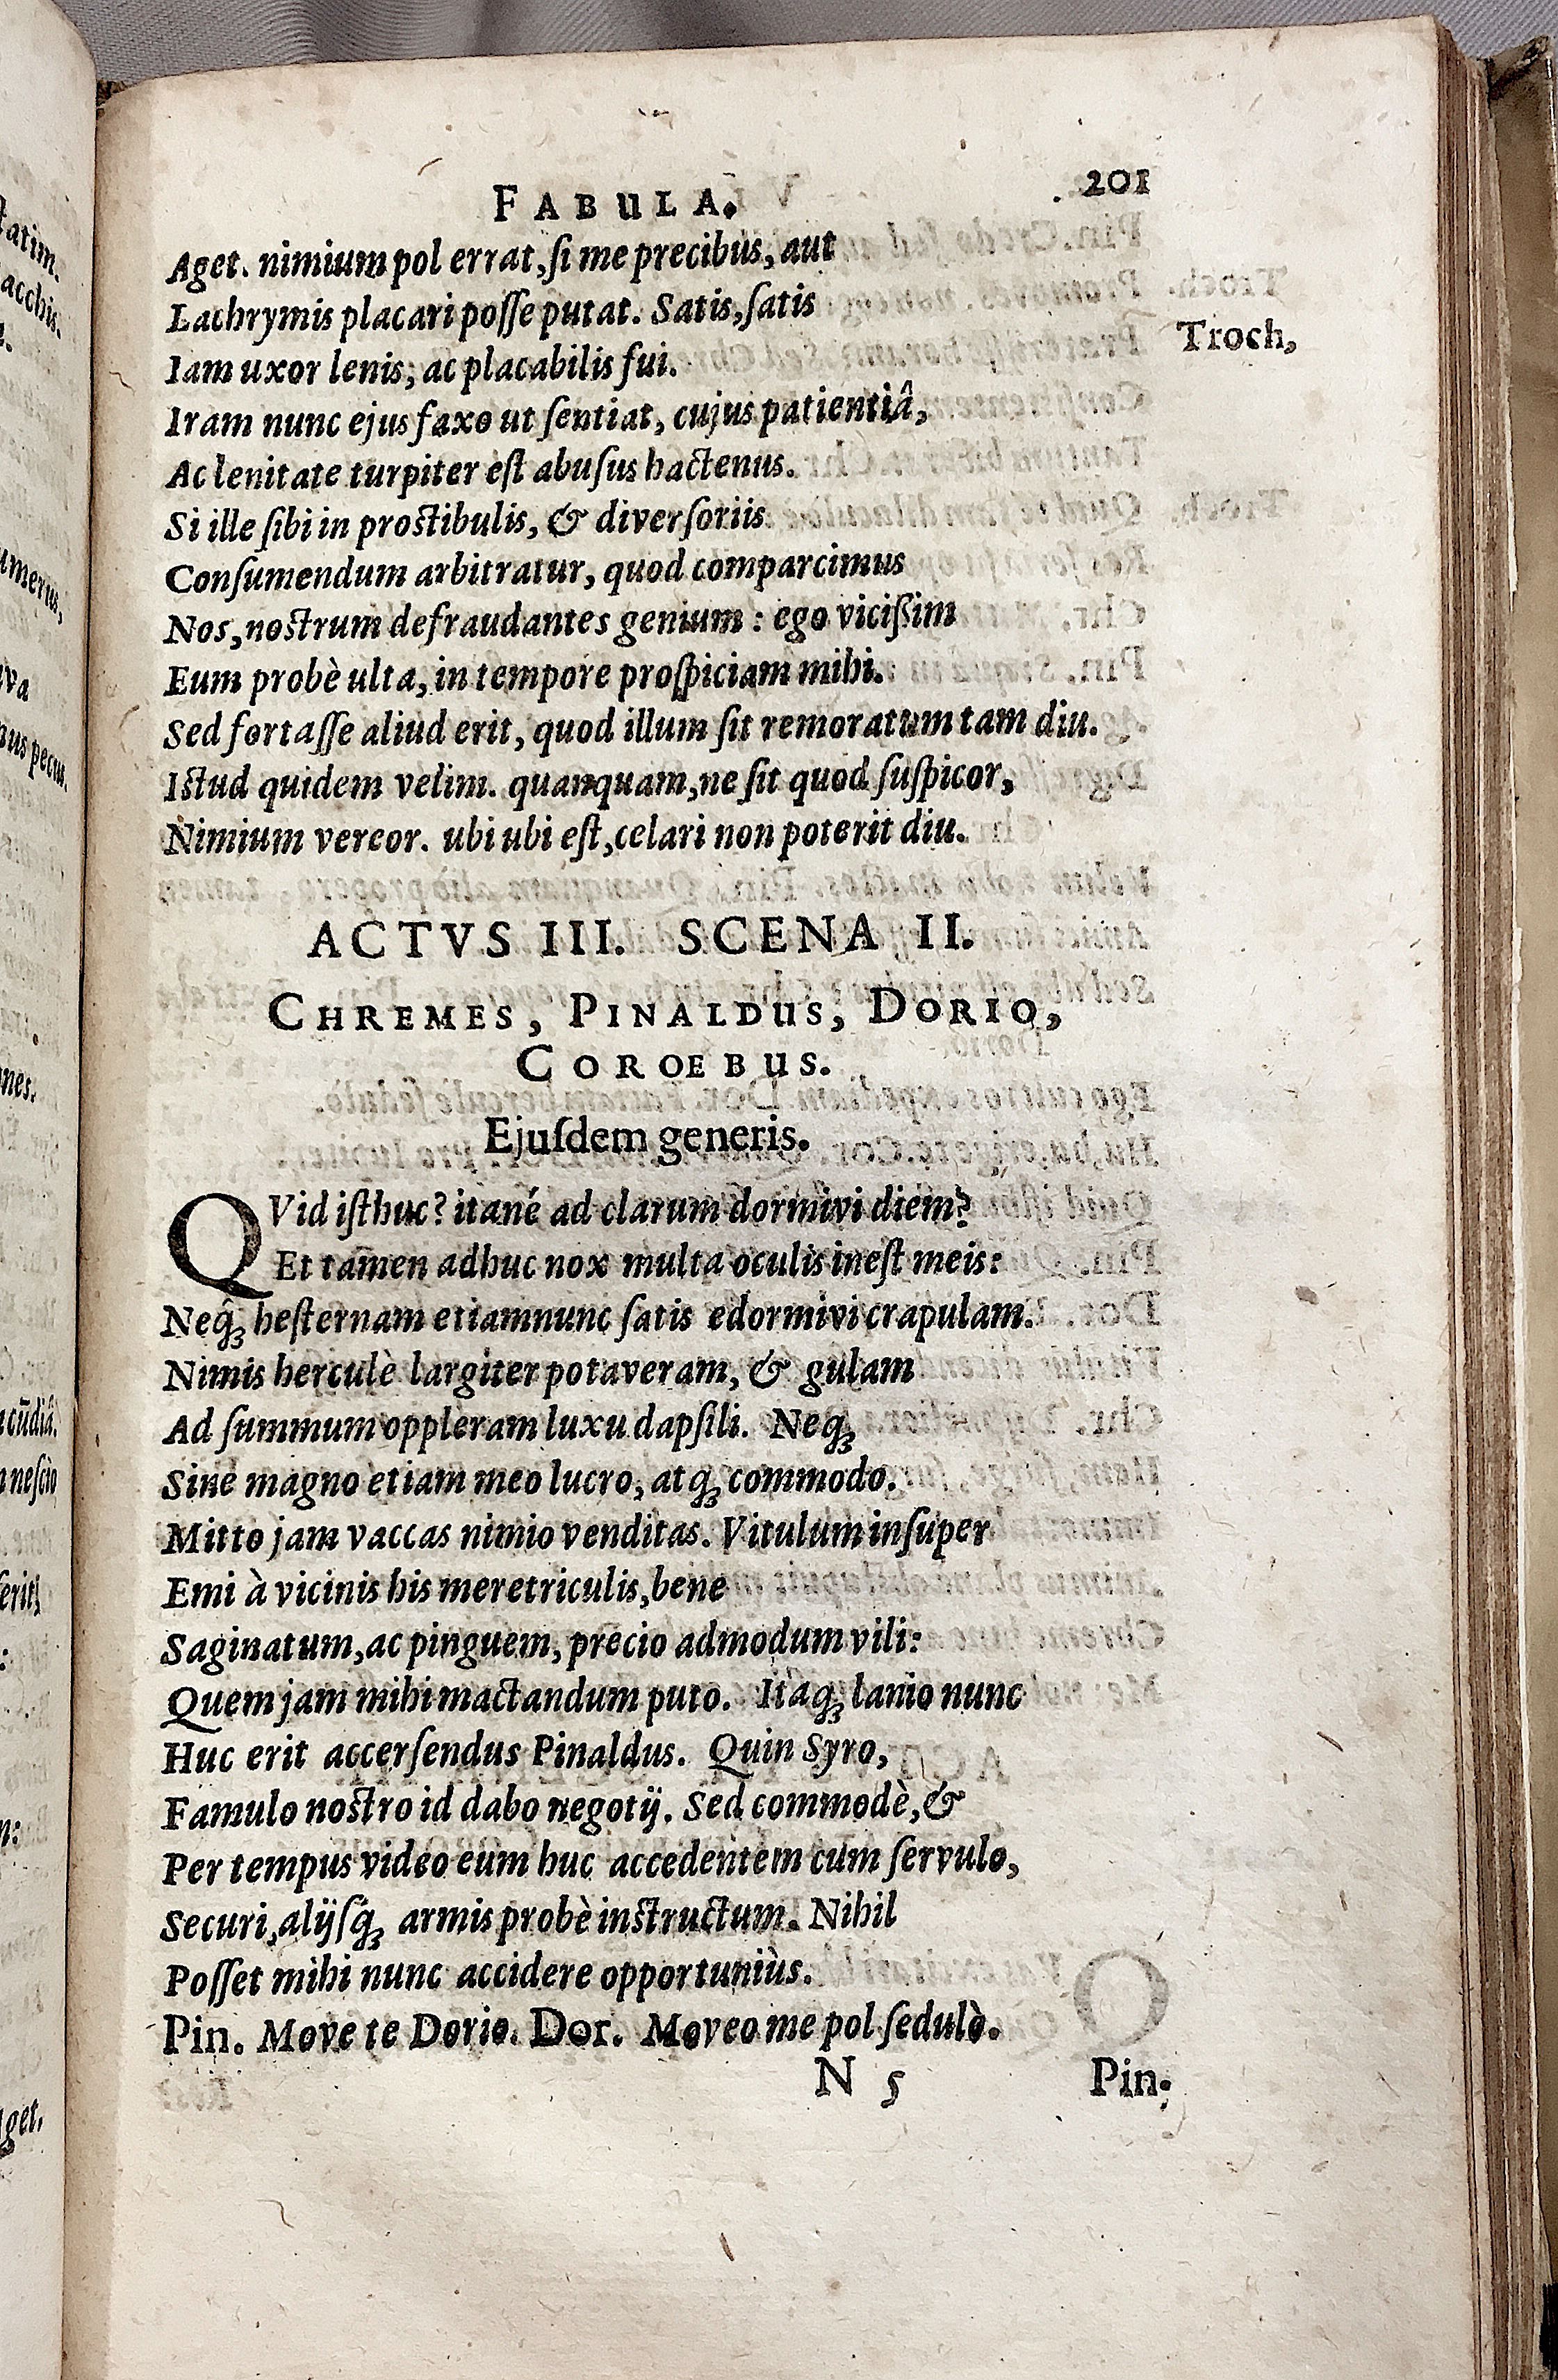 FABULA. 201
Aget. nimium pol errat, ſi me precibus, aut
Lachrymis placari poſſe putat. Satis, ſatis
Troch,
Iam uxor lenis, ac placabilis fui.
Iram nunc ejus faxo ut ſentiat, cujus patientiâ,
Ac lenitate turpiter eſt abuſus hactenus.
Si ille ſibi in proſtibulis, & diverſoriis
Conſumendum arbitratur, quod comparcimus
Nos, noſtrum defraudantes genium : ego viciſsim
Eum probè ulta, in tempore proſpiciam mihi.
Sed fortaſſe aliud erit, quod illum ſit remoratum tam diu.
Iſtud quidem velim. quanquam, ne ſit quod ſuſpicor,
Nimium vereor. ubi ubi eſt, celari non poterit diu.
ACTVS III. SCENA II.
CHREMES, PINALDUS, DORIO,
COROEBUS.
Ejuſdem generis.
QVid iſthuc? itané ad clarum dormivi diem?
Et tamen adhuc nox multa oculis ineſt meis:
Neq́ꝫ heſternam etiamnunc ſatis edormivi crapulam.
Nimis herculè largiter potaveram, & gulam
Ad ſummum oppleram luxu dapſili. Neqꝫ
Sine magno etiam meo lucro, atqꝫ commodo.
Mitto jam vaccas nimio venditas. Vitulum inſuper
Emi à vicinis his meretriculis, bene
Saginatum, ac pinguem, precio admodum vili:
Quem jam mihi mactandum puto. Itaqꝫ lanio nunc
Huc erit accerſendus Pinaldus. Quin Syro,
Famulo noſtro id dabo negotij. Sed commodè, &
Per tempus video eum huc accedentem cum ſervulo,
Securi, alijſq́ꝫ armis probè inſtructum. Nihil
Poſſet mihi nunc accidere opportuniùs.
Pin. Move te Dorio. Dor. Moveo me pol ſedulò.
N 5 Pin.